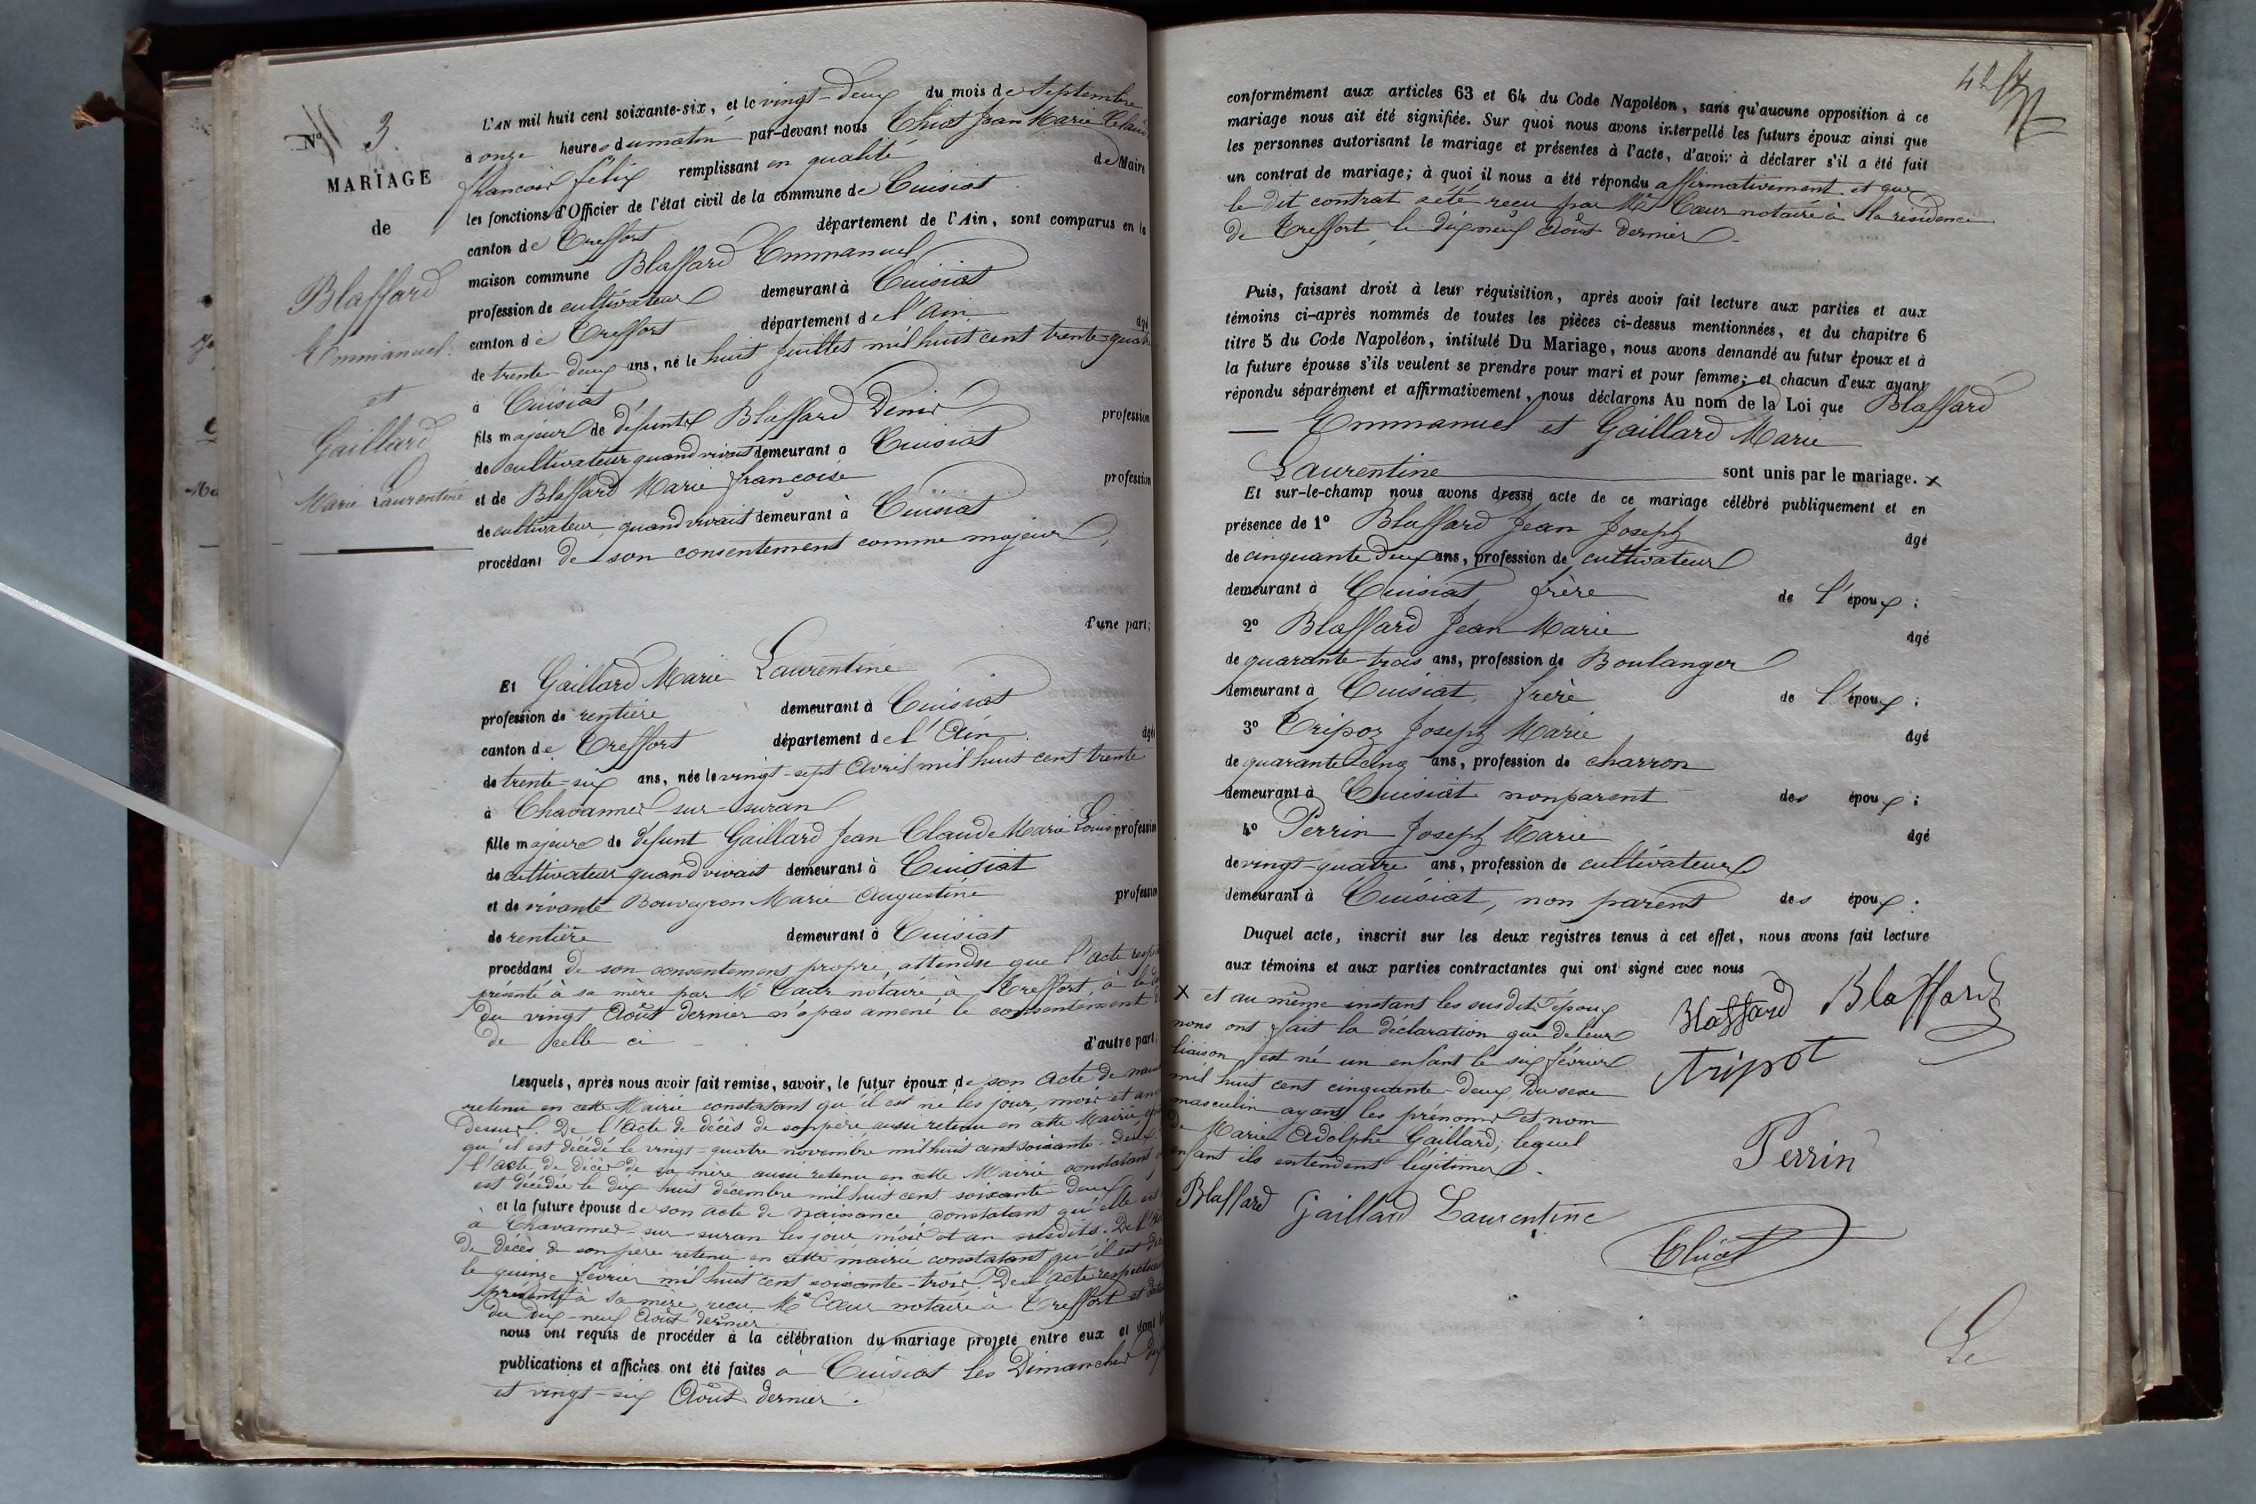 N° 3.
MARIAGE
de
Blaffard
Emmanuel.
et
Gaillard
Marie Laurentine
L'AN mil huit cent soixante-six, et le vingt-deux du mois de Septembre
à onze heures du matin par-devant nous Jean Marie
françois félix remplissant en qualité de Maire
les fonctions d'Officier de l'état civil de la commune de Cuisiat
canton de Treffort département de l'Ain, sont comparus en la
maison commune Blaffard Emmanuel
profession de cultivateur demeurant à Cuisiat
canton de Treffort département de l'Ain âgé
de trente-deux ans, né le huit juillet mil huit cent trente-quatre
à Cuisiat
fils majeur de défunts Blaffard Denis profession
de cultivateur quand vivait demeurant à Cuisiat
et de Blaffard Marie françoise profession
de cultivateur, quand vivait demeurant à Cuisiat
procédant de son consentement comme majeur,
d'une part;
Et Gaillard Marie Laurentine
profession de rentière demeurant à Cuisiat
canton de Treffort département de l'Ain. âgée
de trente-six ans, née le vingt-sept Avril mil huit cent trente
à Chavannes-sur-suran
fille majeure de défunt Gaillard Jean Claude Marie Louis profession
de cultivateur quand vivait demeurant à Cuisiat
et de vivante Bouveyron Marie Augustine profession
de rentière demeurant à Cuisiat
procédant de son consentement propre, attendu que l'acte
présenté à sa mère par Me Cœur notaire à Treffort, à la
du vingt Août dernier n'a pas amené le consentement
de celle ci d'autre part.
Lesquels, après nous avoir fait remise, savoir, le futur époux de son acte de
retenu en cette Mairie constatant qu'il est né les jour, mois et an
dessus. De l'acte de décès de son père aussi retenu en cette Mairie
qu'il est décédé le vingt-quatre novembre mil huit cent soixante-deux.
l'acte de décès de sa mère aussi retenu en cette Mairie constatant
est décédée le dix huit décembre mil huit cent soixante deux
et la future épouse de son acte de naissance constatant qu'elle est
à Chavannes-sur-suran les jour mois et an susdits. De l'
de décès de son père retenu en cette mairie constatant qu'il est
le quinze février mil huit cent soixante-trois. De l'acte respectueux
présenté à sa mère, reçu Me Cœur notaire à Treffort et
du dix-neuf Août dernier
nous ont requis de procéder à la célébration du mariage projeté entre eux et dont les
publications et affiches ont été faites à Cuisiat les Dimanches
et vingt-six Août dernier.
42
conformément aux articles 63 et 64 du Code Napoléon, sans qu'aucune opposition à ce
mariage nous ait été signifiée. Sur quoi nous avons interpellé les futurs époux ainsi que
les personnes autorisant le mariage et présentes à l'acte, d'avoir à déclarer s'il a été fait
un contrat de mariage; à quoi il nous a été répondu affirmativement et que
le dit contrat a été reçu par Me Cœur notaire à la résidence
de Treffort, le dix neuf Août dernier.
Puis, faisant droit à leur réquisition, après avoir fait lecture aux parties et aux
témoins ci-après nommés de toutes les pièces ci-dessus mentionnées, et du chapitre 6
titre 5 du Code Napoléon, intitulé Du Mariage, nous avons demandé au futur époux et à
la future épouse s'ils veulent se prendre pour mari et pour femme; et chacun d'eux ayant
répondu séparément et affirmativement, nous déclarons Au nom de la Loi que Blaffard
Emmanuel et Gaillard Marie
Laurentine sont unis par le mariage. x
Et sur-le-champ nous avons dressé acte de ce mariage célébré publiquement et en
présence de 1° Blaffard Jean Joseph âgé
de cinquante deux ans, profession de cultivateur
demeurant à Cuisiat frère de l'époux;
2° Blaffard Jean Marie âgé
de quarante-trois ans, profession de Boulanger
demeurant à Cuisiat, frère de l'époux;
3° Tripoz Joseph Marie âgé
de quarante cinq ans, profession de charron
demeurant à Cuisiat non parent des époux;
4° Perrin Joseph Marie âgé
de vingt-quatre ans, profession de cultivateur
demeurant à Cuisiat, non parent des époux.
Duquel acte, inscrit sur les deux registres tenus à cet effet, nous avons fait lecture
aux témoins et aux parties contractantes qui ont signé avec nous
x et au même instant les susdits époux
nous ont fait la déclaration que de leur
liaison est né un enfant le six février
mil huit cent cinquante-deux du sexe
masculin ayant les prénoms et nom
de Marie Adolphe Gaillard, lequel
enfant ils entendent légitimer.
Blaffard Blaffard
tripot
Perrin
Blaffard Gaillard Laurentine
Le